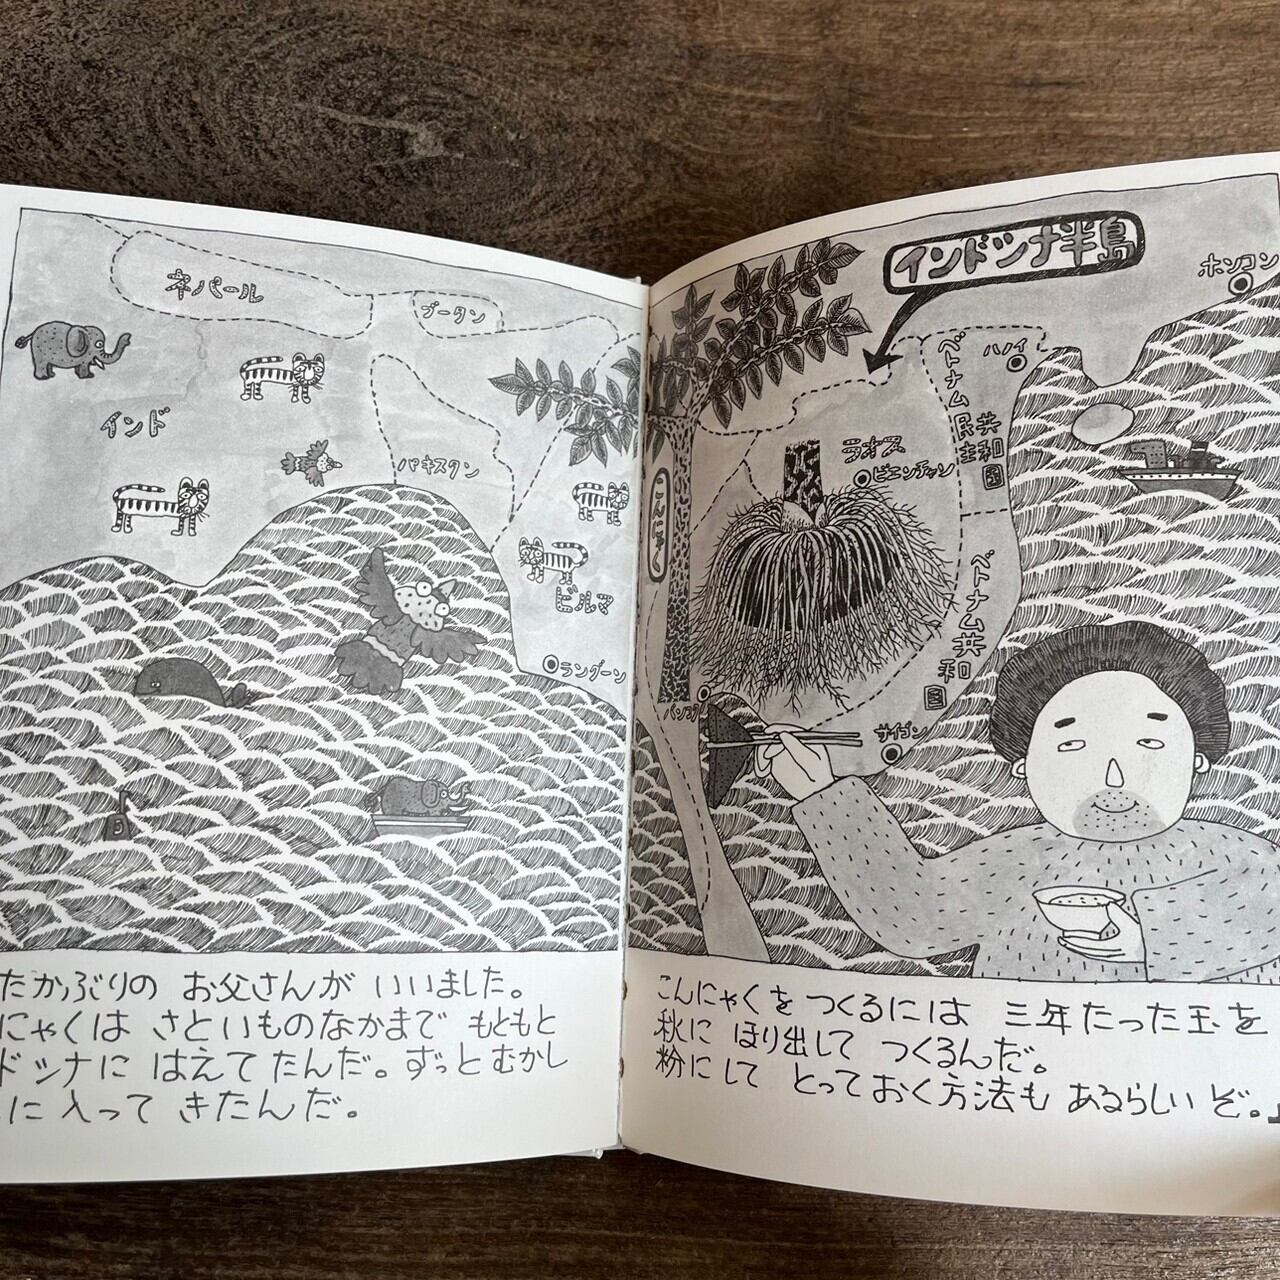 ネパール
ブータン
インド
パキスタン
ビルマ
ラングーン
たかぶりの お父さんが いいました。
にゃくは さといものなかまで もともと
ドシナに はえて たんだ。ずっと むかし
に 入って きたんだ。
インドシナ半島
ホンコン
ハノイ
ベトナム民主共和国
ラオス
ビエンチャン
こんにゃく
ベトナム共和国
バンコク
サイゴン
こんにゃくを つくるには 三年たった玉を
秋に ほり出して つくるんだ。
粉にして とっておく方法も あるらしい ぞ。